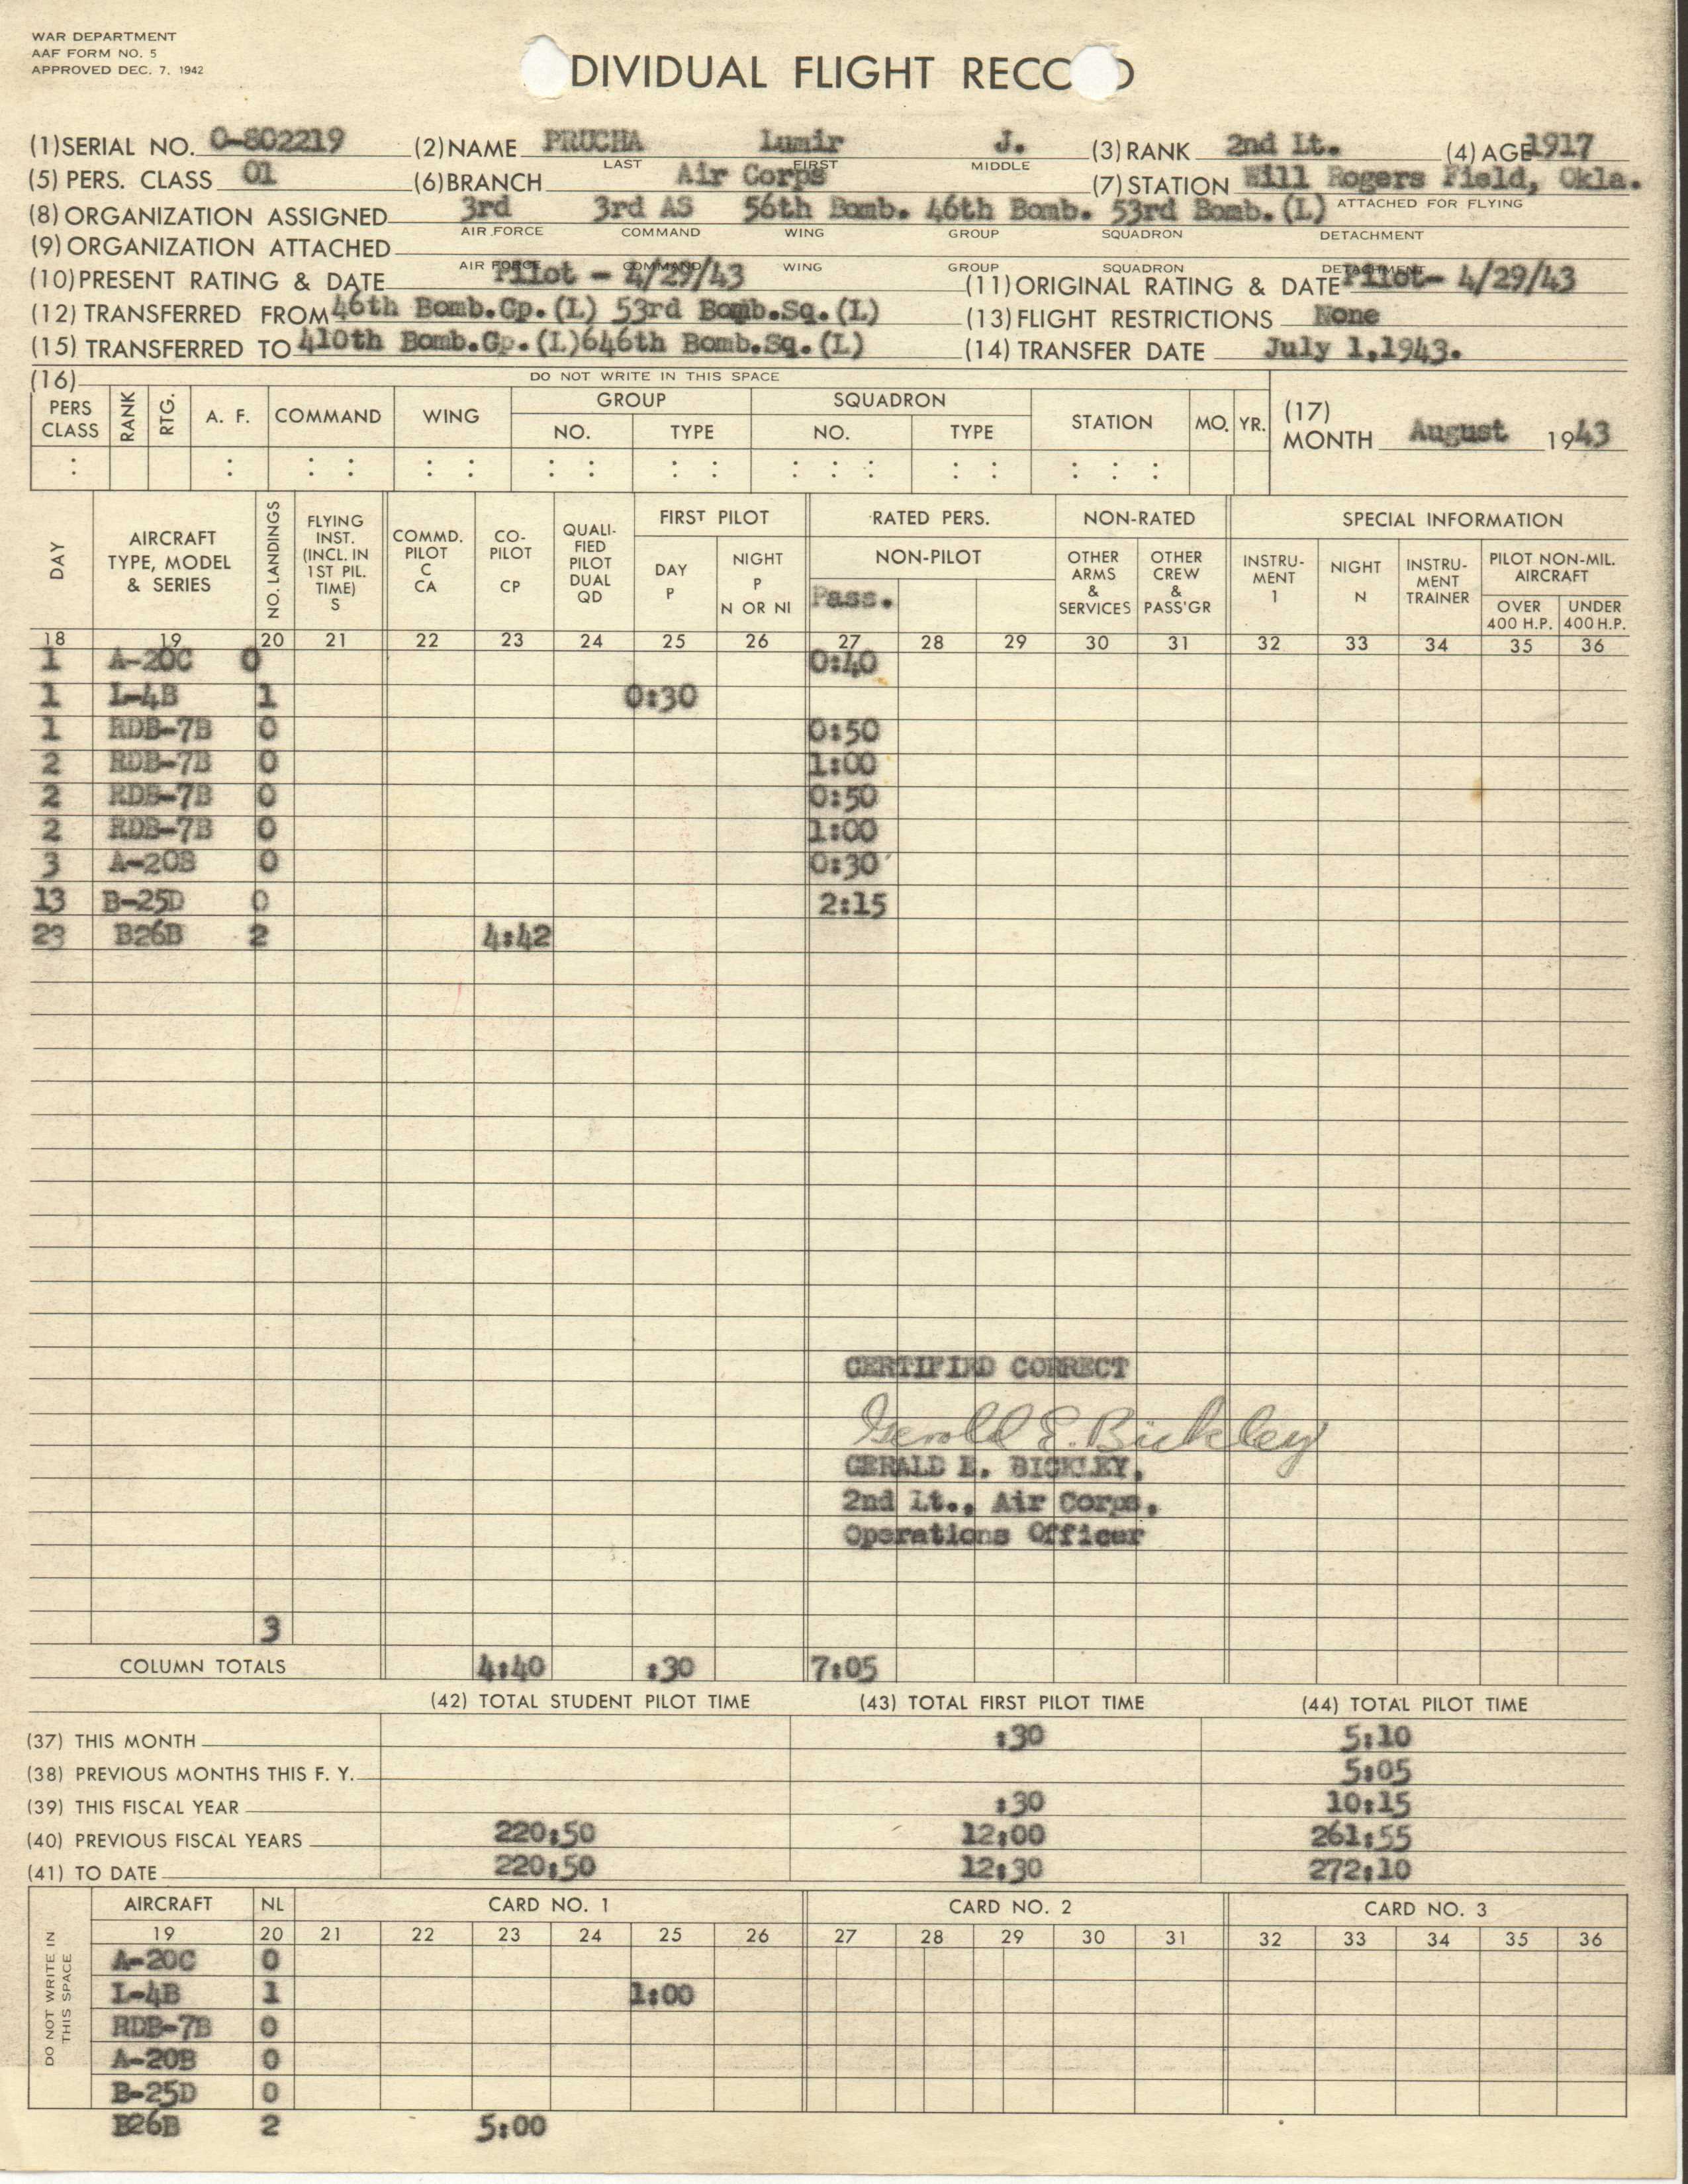 WAR DEPARTMENT
AAF FORM NO. 5
APPROVED DEC. 7, 1942
DIVIDUAL FLIGHT RECO D
(1) SERIAL NO. O-802219 (2) NAME PRUCHA Lumir J. (3) RANK 2nd Lt. (4) AGE 1917
LAST FIRST MIDDLE
(5) PERS. CLASS 01 (6) BRANCH Air Corps (7) STATION Will Rogers Field, Okla.
(8) ORGANIZATION ASSIGNED 3rd 3rd AS 56th Bomb. 46th Bomb. 53rd Bomb. (L) ATTACHED FOR FLYING
AIR FORCE COMMAND WING GROUP SQUADRON DETACHMENT
(9) ORGANIZATION ATTACHED
AIR FORCE COMMAND WING GROUP SQUADRON DETACHMENT
(10) PRESENT RATING & DATE Pilot - 4/29/43 (11) ORIGINAL RATING & DATE Pilot- 4/29/43
(12) TRANSFERRED FROM 46th Bomb.Gp.(L) 53rd Bomb.Sq.(L) (13) FLIGHT RESTRICTIONS None
(15) TRANSFERRED TO 410th Bomb.Gp.(L)646th Bomb.Sq.(L) (14) TRANSFER DATE July 1,1943.
(16) DO NOT WRITE IN THIS SPACE
PERS CLASS RANK RTG. A. F. COMMAND WING GROUP NO. TYPE SQUADRON NO. TYPE STATION MO. YR. (17) MONTH August 1943
DAY AIRCRAFT TYPE, MODEL & SERIES NO. LANDINGS FLYING INST. (INCL. IN 1ST PIL. TIME) S COMMD. PILOT C CA CO-PILOT CP QUALI-FIED PILOT DUAL QD FIRST PILOT DAY P NIGHT P N OR NI RATED PERS. NON-PILOT Pass. NON-RATED OTHER ARMS & SERVICES OTHER CREW & PASS'GR SPECIAL INFORMATION INSTRU-MENT 1 NIGHT N INSTRU-MENT TRAINER PILOT NON-MIL. AIRCRAFT OVER 400 H.P. UNDER 400 H.P.
18 19 20 21 22 23 24 25 26 27 28 29 30 31 32 33 34 35 36
1 A-20C 0 0:40
1 L-4B 1 0:30
1 RDB-7B 0 0:50
2 RDB-7B 0 1:00
2 RDB-7B 0 0:50
2 RDB-7B 0 1:00
3 A-20B 0 0:30
13 B-25D 0 2:15
23 B26B 2 4:42
CERTIFIED CORRECT
Gerald E. Bickley
GERALD E. BICKLEY,
2nd Lt., Air Corps,
Operations Officer
3
COLUMN TOTALS 4:40 :30 7:05
(42) TOTAL STUDENT PILOT TIME (43) TOTAL FIRST PILOT TIME (44) TOTAL PILOT TIME
(37) THIS MONTH :30 5:10
(38) PREVIOUS MONTHS THIS F. Y. 5:05
(39) THIS FISCAL YEAR :30 10:15
(40) PREVIOUS FISCAL YEARS 220:50 12:00 261:55
(41) TO DATE 220:50 12:30 272:10
AIRCRAFT NL CARD NO. 1 CARD NO. 2 CARD NO. 3
19 20 21 22 23 24 25 26 27 28 29 30 31 32 33 34 35 36
DO NOT WRITE IN THIS SPACE
A-20C 0
L-4B 1 1:00
RDB-7B 0
A-20B 0
B-25D 0
B26B 2 5:00